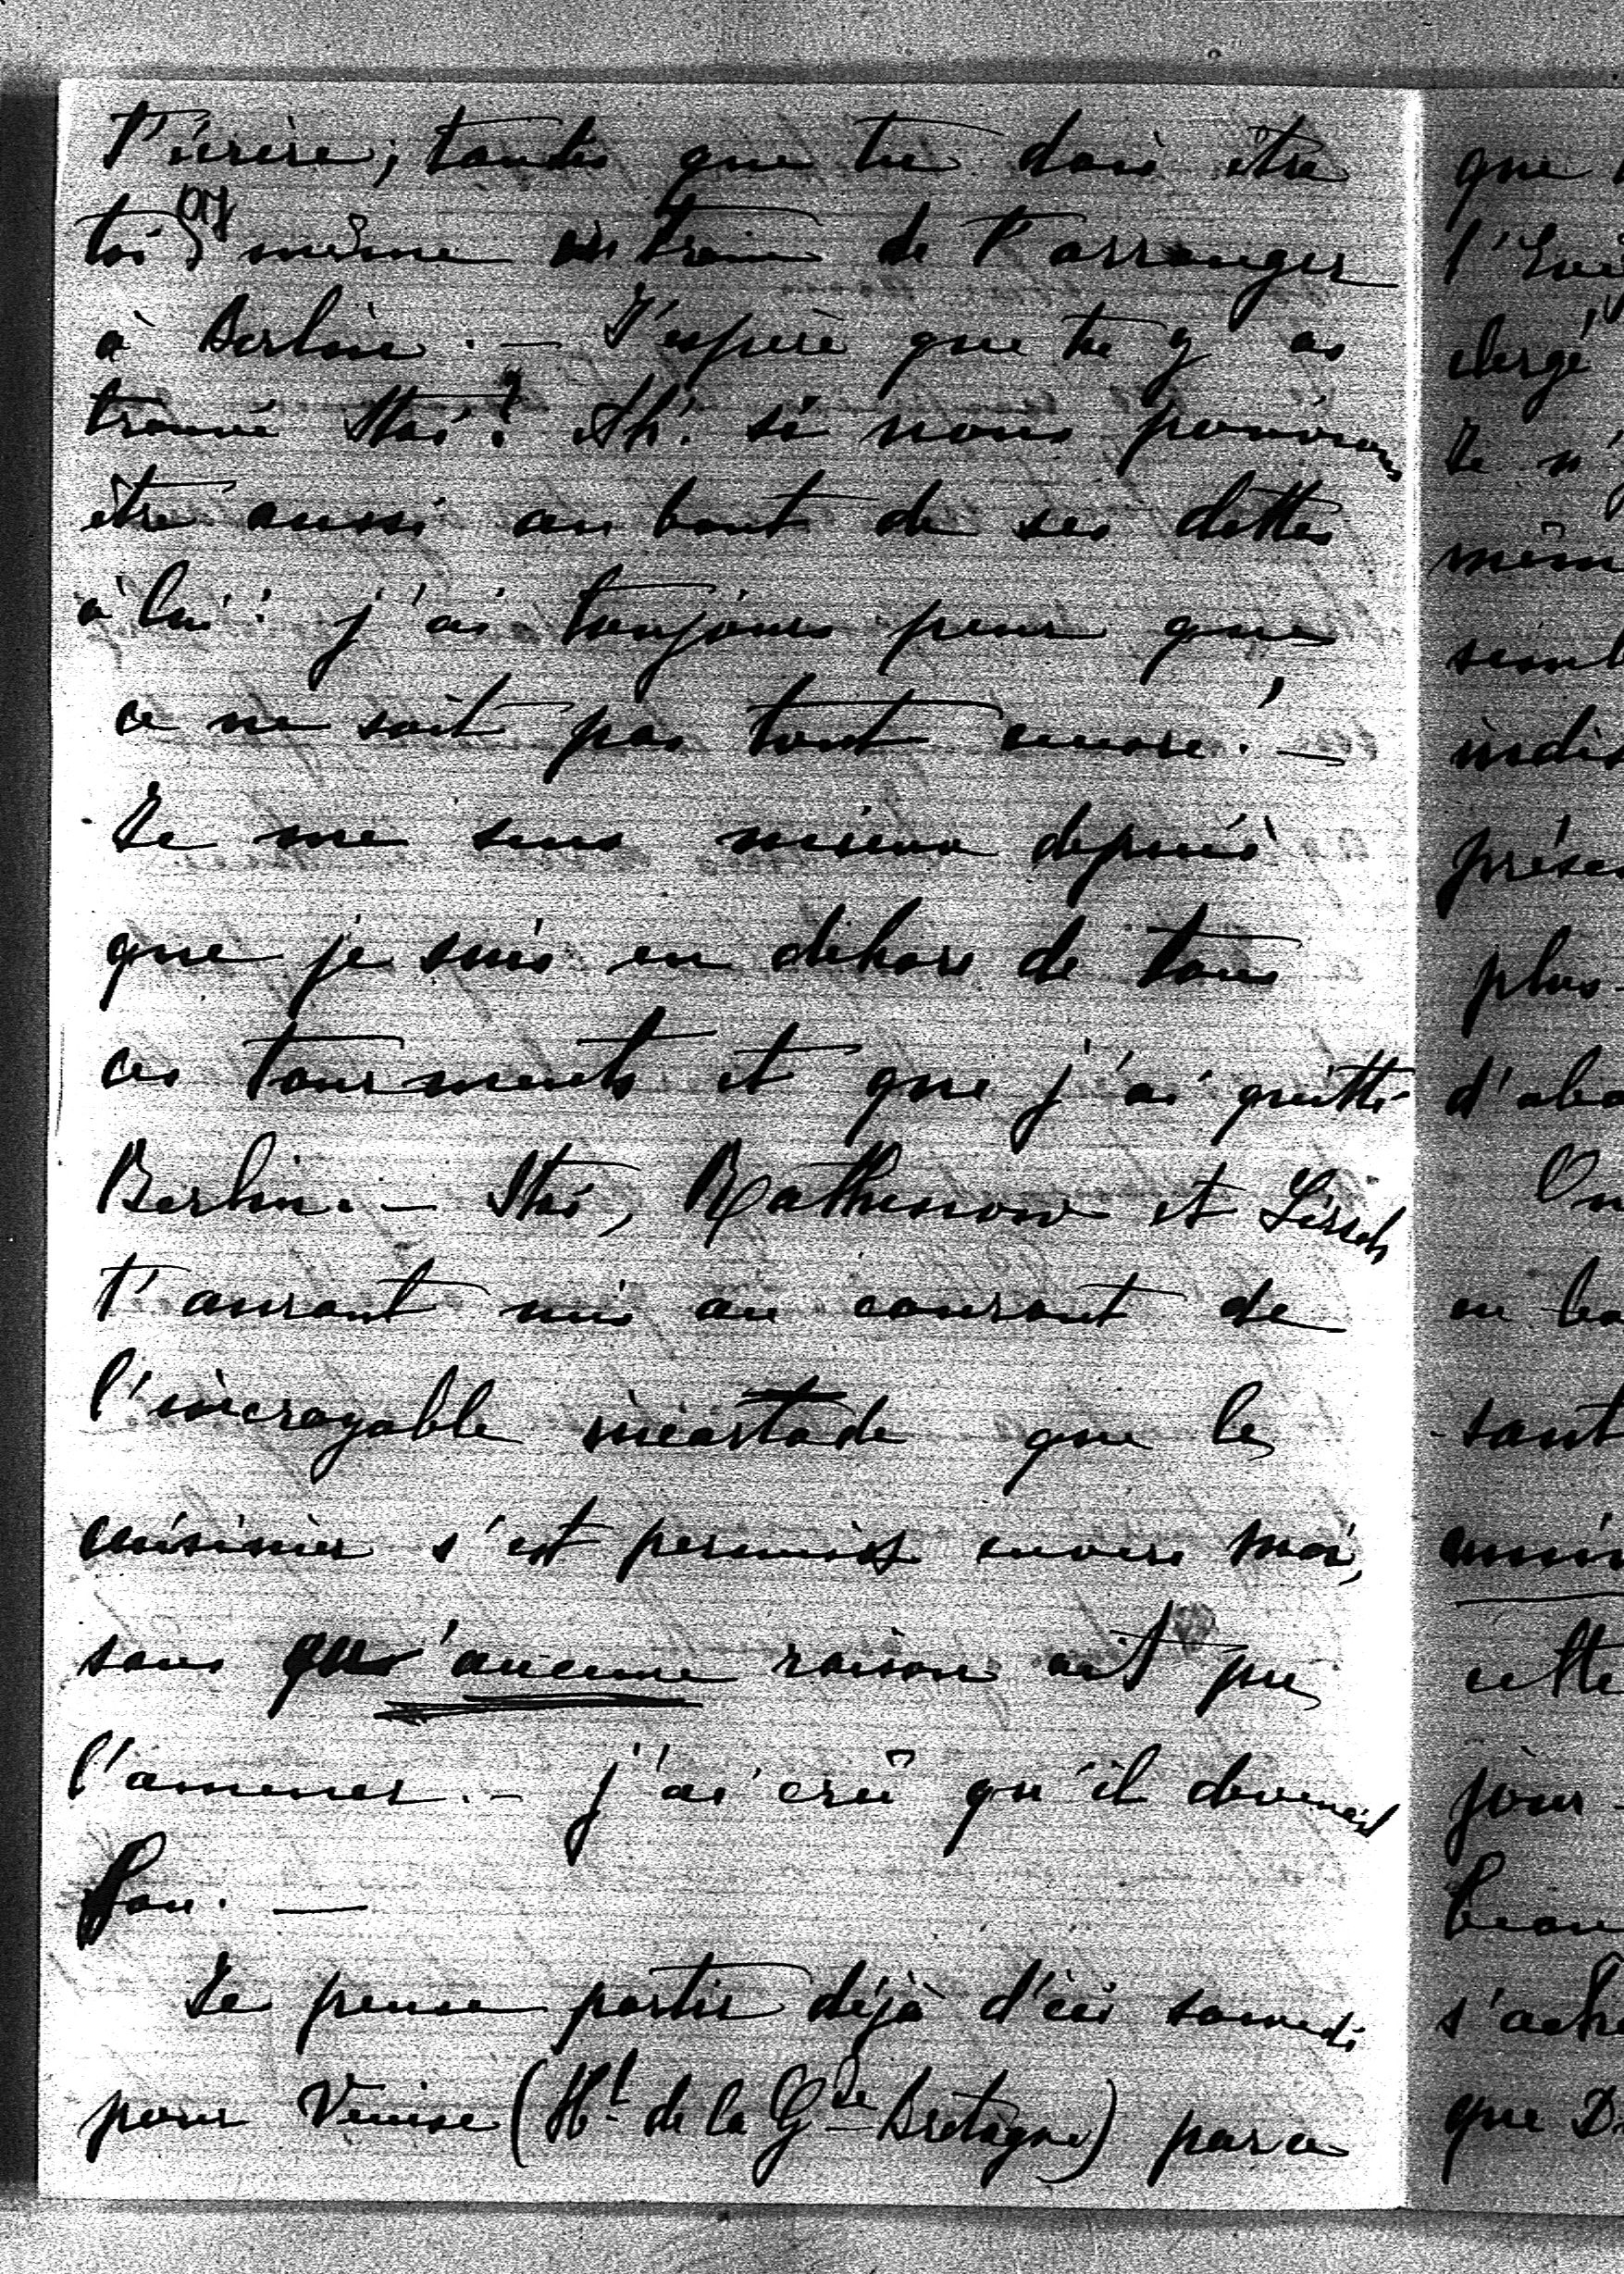 t'écrire, tandis que tu dois être
toi même en train de t'arranger
à Berlin. — J'espère que tu y as
trouvé Stai? Ah! si nous pouvions
être aussi au bout de ses dettes
à lui! j'ai toujours peur que
ce ne soit pas tout encore! —
Je me sens mieux depuis
que je suis en dehors de tous
ces tourments et que j'ai quitté
Berlin. — Stai, Rathenow et Lirsch
t'auront mis au courant de
l'incroyable incartade que le
cuisinier s'est permise envers moi,
sans qu'aucune raison ait pu
l'amener. — j'ai crû qu'il devenait
fou. —
Je pense partir déjà d'ici samedi
pour Venise (Hl. de la Gde Bretagne) par ce
que
clergé
Je n'
plus
On
cette
jour
que D